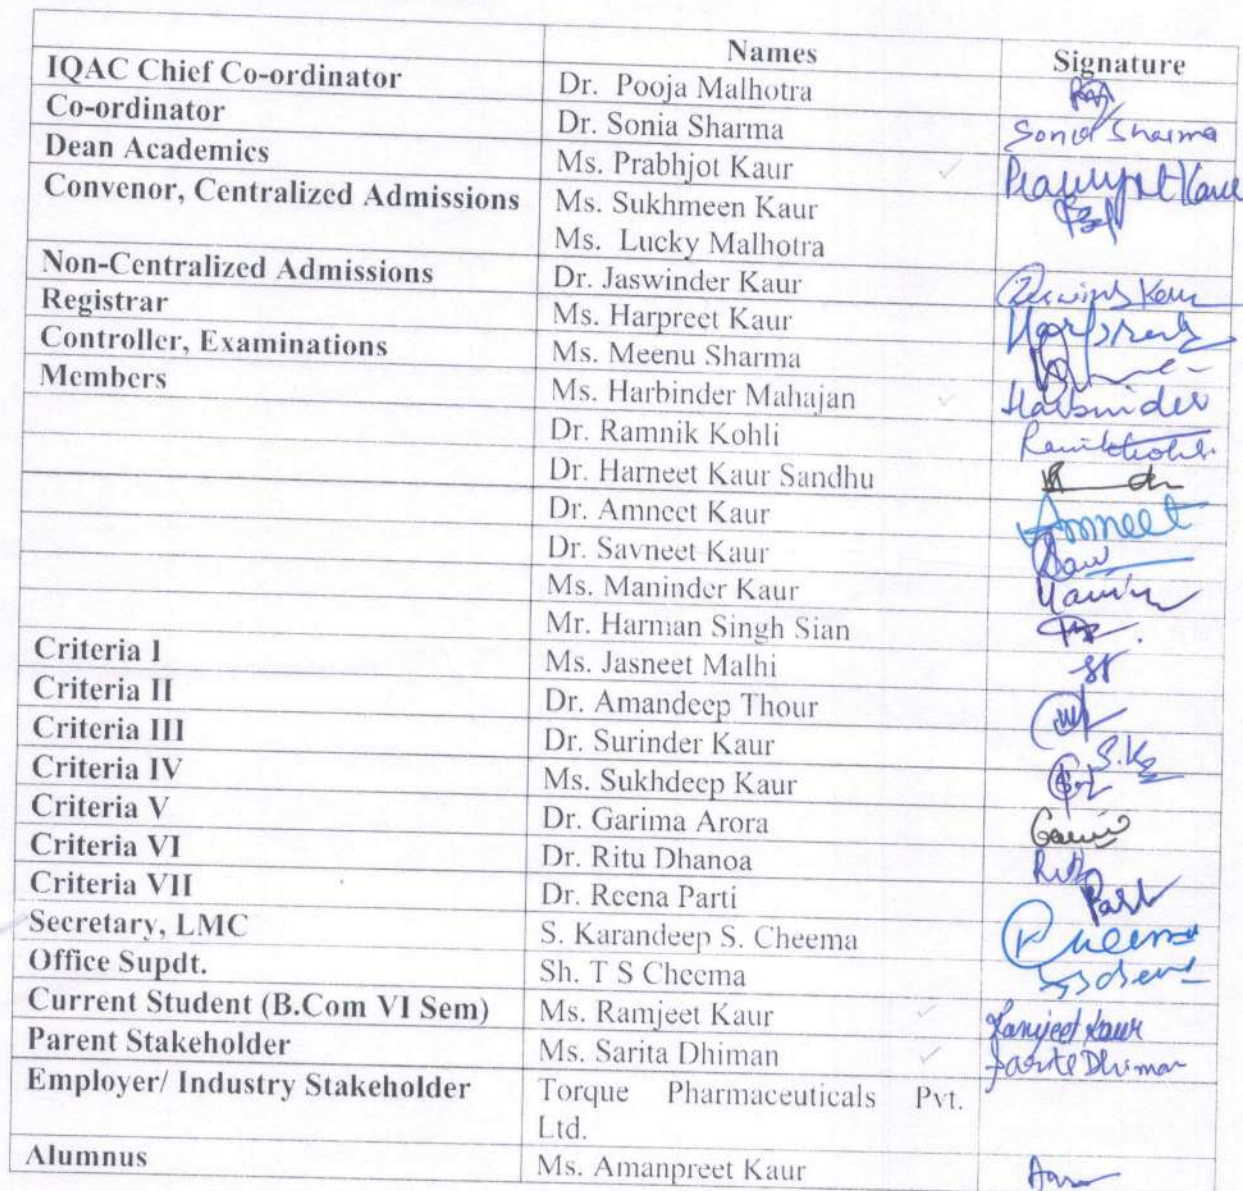 Names Signature
IQAC Chief Co-ordinator Dr. Pooja Malhotra
Co-ordinator Dr. Sonia Sharma Sonia Sharma
Dean Academics Ms. Prabhjot Kaur Prabhjot Kaur
Convenor, Centralized Admissions Ms. Sukhmeen Kaur
Ms. Lucky Malhotra
Non-Centralized Admissions Dr. Jaswinder Kaur Kaur
Registrar Ms. Harpreet Kaur Harpreet
Controller, Examinations Ms. Meenu Sharma
Members Ms. Harbinder Mahajan Harbinder
Dr. Ramnik Kohli
Dr. Harneet Kaur Sandhu
Dr. Amneet Kaur Amneet
Dr. Savneet Kaur
Ms. Maninder Kaur
Mr. Harman Singh Sian
Criteria I Ms. Jasneet Malhi
Criteria II Dr. Amandeep Thour
Criteria III Dr. Surinder Kaur S.K
Criteria IV Ms. Sukhdeep Kaur
Criteria V Dr. Garima Arora
Criteria VI Dr. Ritu Dhanoa Ritu
Criteria VII Dr. Reena Parti Parti
Secretary, LMC S. Karandeep S. Cheema Cheema
Office Supdt. Sh. T S Cheema
Current Student (B.Com VI Sem) Ms. Ramjeet Kaur Ramjeet Kaur
Parent Stakeholder Ms. Sarita Dhiman Sarita Dhiman
Employer/ Industry Stakeholder Torque Pharmaceuticals Pvt.
Ltd.
Alumnus Ms. Amanpreet Kaur